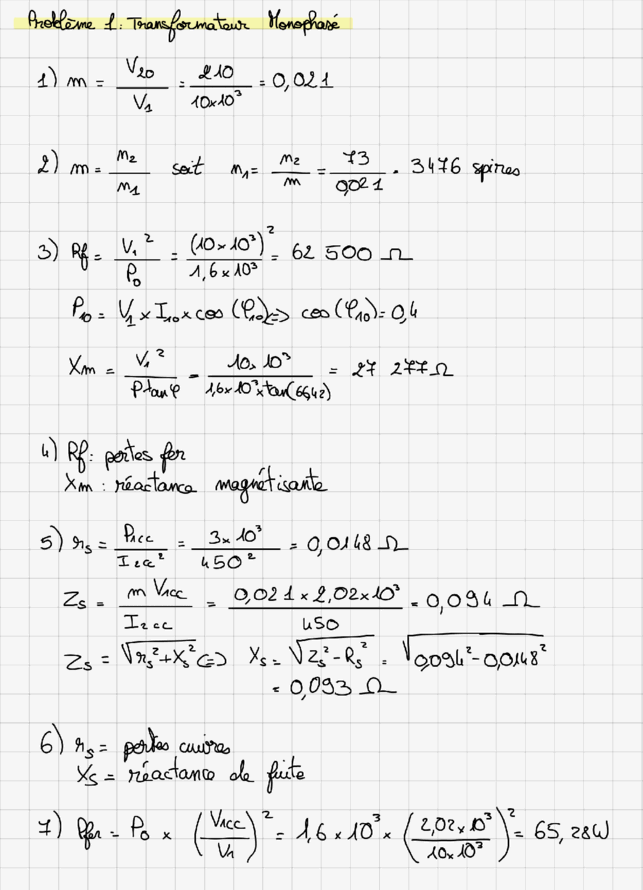 Problème 1: Transformateur Monophasé
1) m = V₂₀ / V₁ = 210 / 10×10³ = 0,021
2) m = n₂ / n₁ soit n₁ = n₂ / m = 73 / 0,021 = 3476 spires
3) Rf = V₁² / P₀ = (10×10³)² / 1,6×10³ = 62 500 Ω
P₁₀ = V₁ × I₁₀ × cos(φ₁₀) <=> cos(φ₁₀) = 0,4
Xm = V₁² / P tan φ = 10×10³ / 1,6×10³×tan(66,42) = 27 277 Ω
4) Rf: pertes fer
Xm : réactance magnétisante
5) rs = P₁cc / I₂cc² = 3×10³ / 450² = 0,0148 Ω
Zs = m V₁cc / I₂cc = 0,021 × 2,02×10³ / 450 = 0,094 Ω
Zs = √(rs² + Xs²) <=> Xs = √(Zs² - Rs²) = √(0,094² - 0,0148²)
= 0,093 Ω
6) rs = pertes cuivres
Xs = réactance de fuite
7) Pfer = P₀ × (V₁cc / V₁)² = 1,6 × 10³ × (2,02×10³ / 10×10³)² = 65,28W